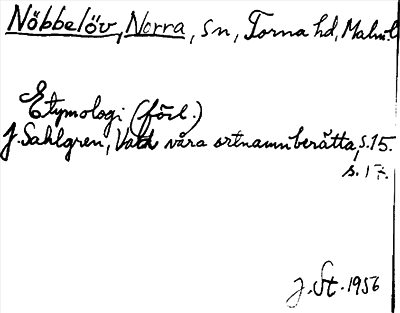 Nöbbelöv, Norra, sn, Torna hd, Malm.l
Etymologi (förl.)
J. Sahlgren, Vad våra ortnamn berätta, s.15.
s.17.
J. St. 1956